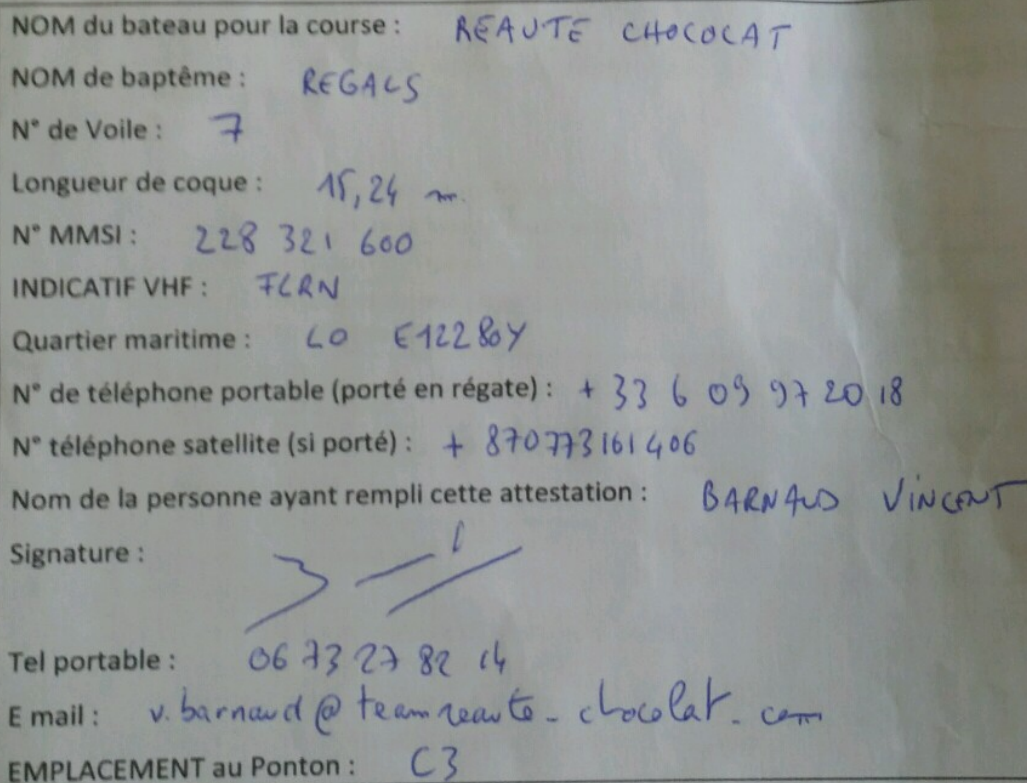 NOM du bateau pour la course : REAUTE CHOCOLAT
NOM de baptême : REGALS
N° de Voile : 7
Longueur de coque : 15,24 m
N° MMSI : 228 321 600
INDICATIF VHF : FLRN
Quartier maritime : LO E12280Y
N° de téléphone portable (porté en régate) : + 33 6 09 97 20 18
N° téléphone satellite (si porté) : + 870773161406
Nom de la personne ayant rempli cette attestation : BARNAUD VINCENT
Signature :
Tel portable : 06 73 27 82 14
E mail : v.barnaud@teamreaute-chocolat.com
EMPLACEMENT au Ponton : C3